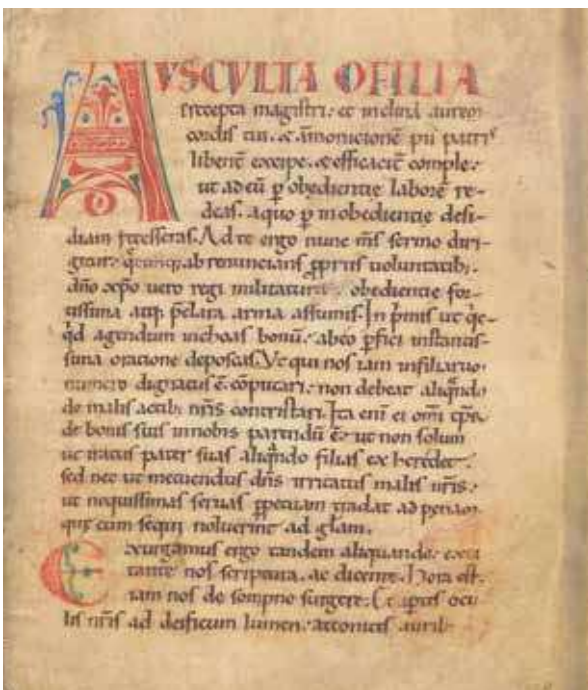 AVSCVLTA O FILIA
precepta magistri. et inclina aurem
cordis tui. & āmonicionē pii patris
libent̄ excipe. & efficacit̄ comple.
ut ad eū p̱ obedientię laborē re-
deas. a quo p̱ inobedientię desi-
diam recesseras. Ad te ergo nunc m̄s sermo diri-
gitur. abrenuncians ꝓpriis uoluntatib;
dn̄o xp̄o uero regi militatura. obedientię for-
tissima atq; p̄clara arma assumis. In p̄mis ut
q̇d agendum inchoas bonū. ab eo p̱fici instantis-
sima oratione deposcas. Vt qui nos iam in filiarū
numero dignatus ē cōputari. non debeat aliq̇ndo
de malis actib; nr̄is contristari. Ita eni ei omi tp̄r
de bonis suis in nobis parendū ē. ut non solum
ut iratus pater suas aliq̇ndo filias exheredet.
sed nec ut metuendus dn̄s irritatus malis nr̄is.
ut nequissimas seruas ꝑpetuam tradat ad penam
quę eum sequi noluerint ad glam.
Exurgamus ergo tandem aliquando. exci
tante nos scriptura. ac dicente. Hora est
iam nos de sompno surgere. Et aptis ocu
lis nr̄is ad deificum lumen. attonitis aurib;